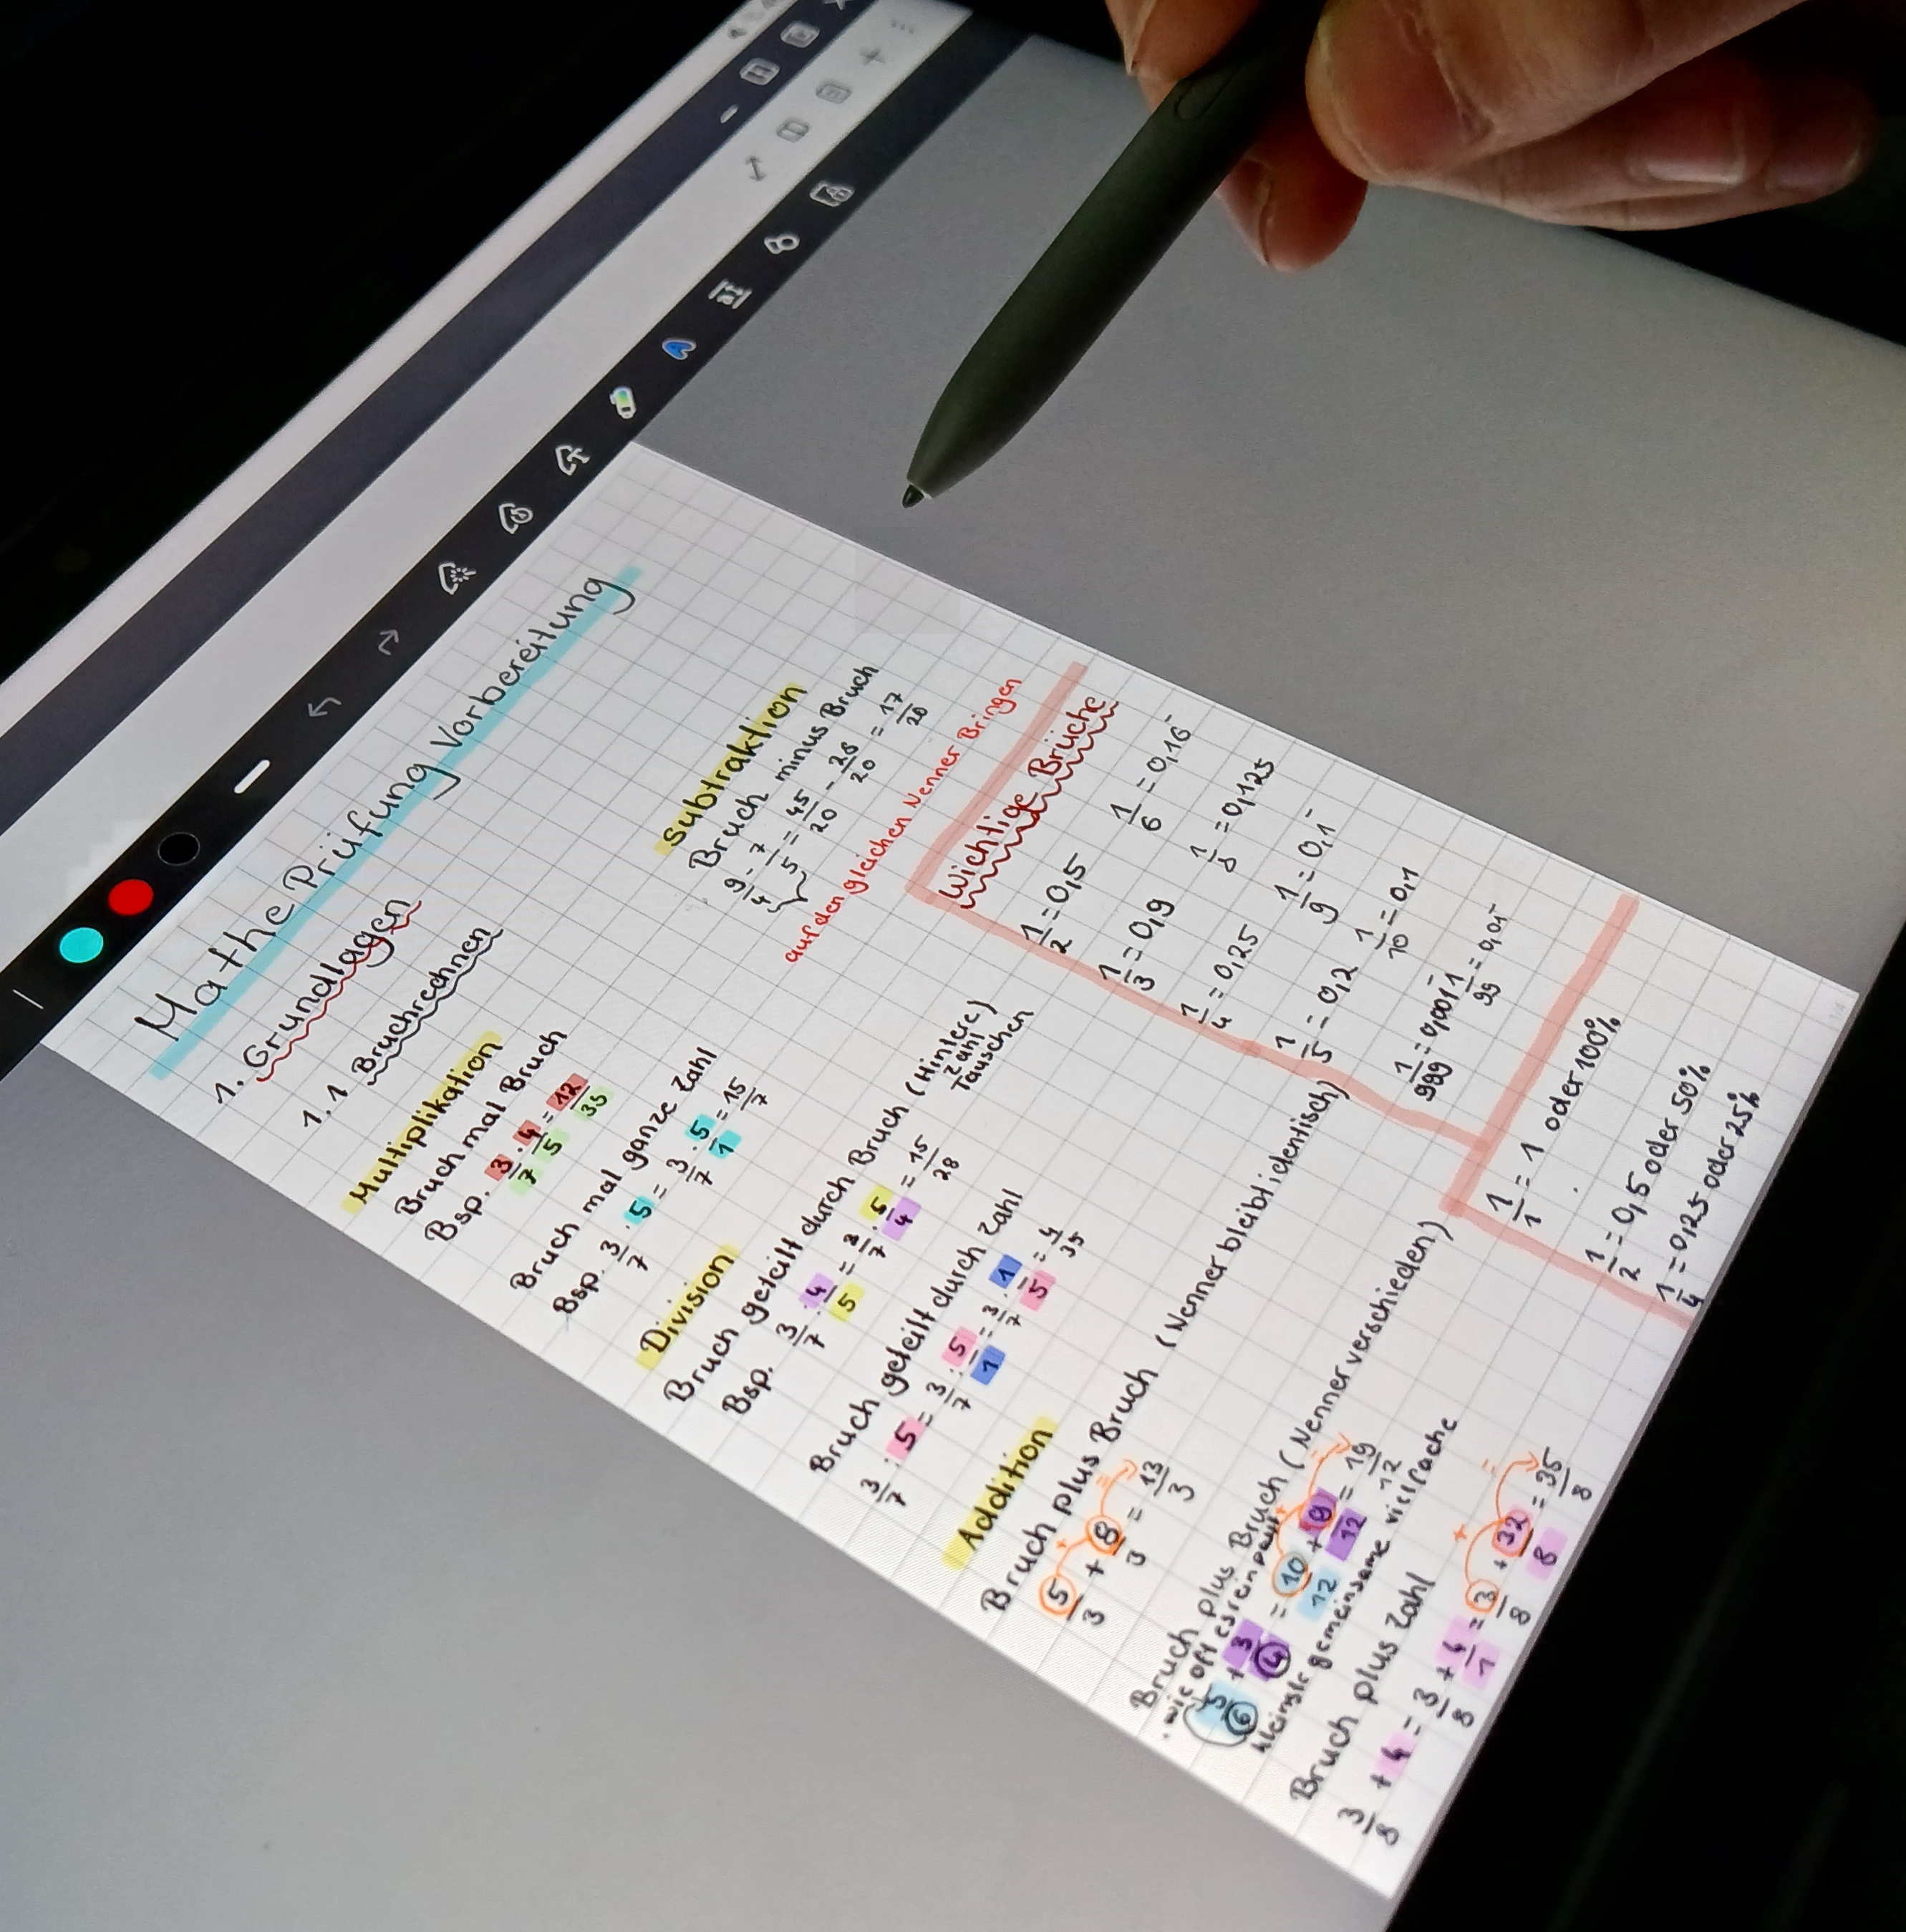 Mathe Prüfung Vorbereitung
1. Grundlagen
1.1 Bruchrechnen
Multiplikation
Bruch mal Bruch
Bsp. 3/7 · 4/5 = 12/35
Bruch mal ganze Zahl
Bsp. 3/7 · 5 = 3/7 · 5/1 = 15/7
Division
Bruch geteilt durch Bruch (Hintere Zahl Tauschen)
Bsp. 3/7 : 4/5 = 3/7 · 5/4 = 15/28
Bruch geteilt durch Zahl
3/7 : 5 = 3/7 : 5/1 = 3/7 · 1/5 = 4/35
Addition
Bruch plus Bruch (Nenner bleibl identisch)
5/3 + 8/3 = 13/3
Bruch plus Bruch (Nenner verschieden)
· wie oft es reinpasst
5/6 + 3/4 = 10/12 + 9/12 = 19/12
kleinste gemeinsame vielfache
Bruch plus Zahl
3/8 + 4 = 3/8 + 4/1 = 3/8 + 32/8 = 35/8
Subtraktion
Bruch minus Bruch
9/4 - 7/5 = 45/20 - 28/20 = 17/20
auf den gleichen Nenner Bringen
Wichtige Brüche
1/2 = 0,5
1/6 = 0,16̄
1/3 = 0,9
1/8 = 0,125
1/4 = 0,25
1/9 = 0,1̄
1/5 = 0,2
1/10 = 0,1
1/999 = 0,001̄
1/99 = 0,01̄
1/1 = 1 oder 100%
1/2 = 0,5 oder 50%
1/4 = 0,25 oder 25%